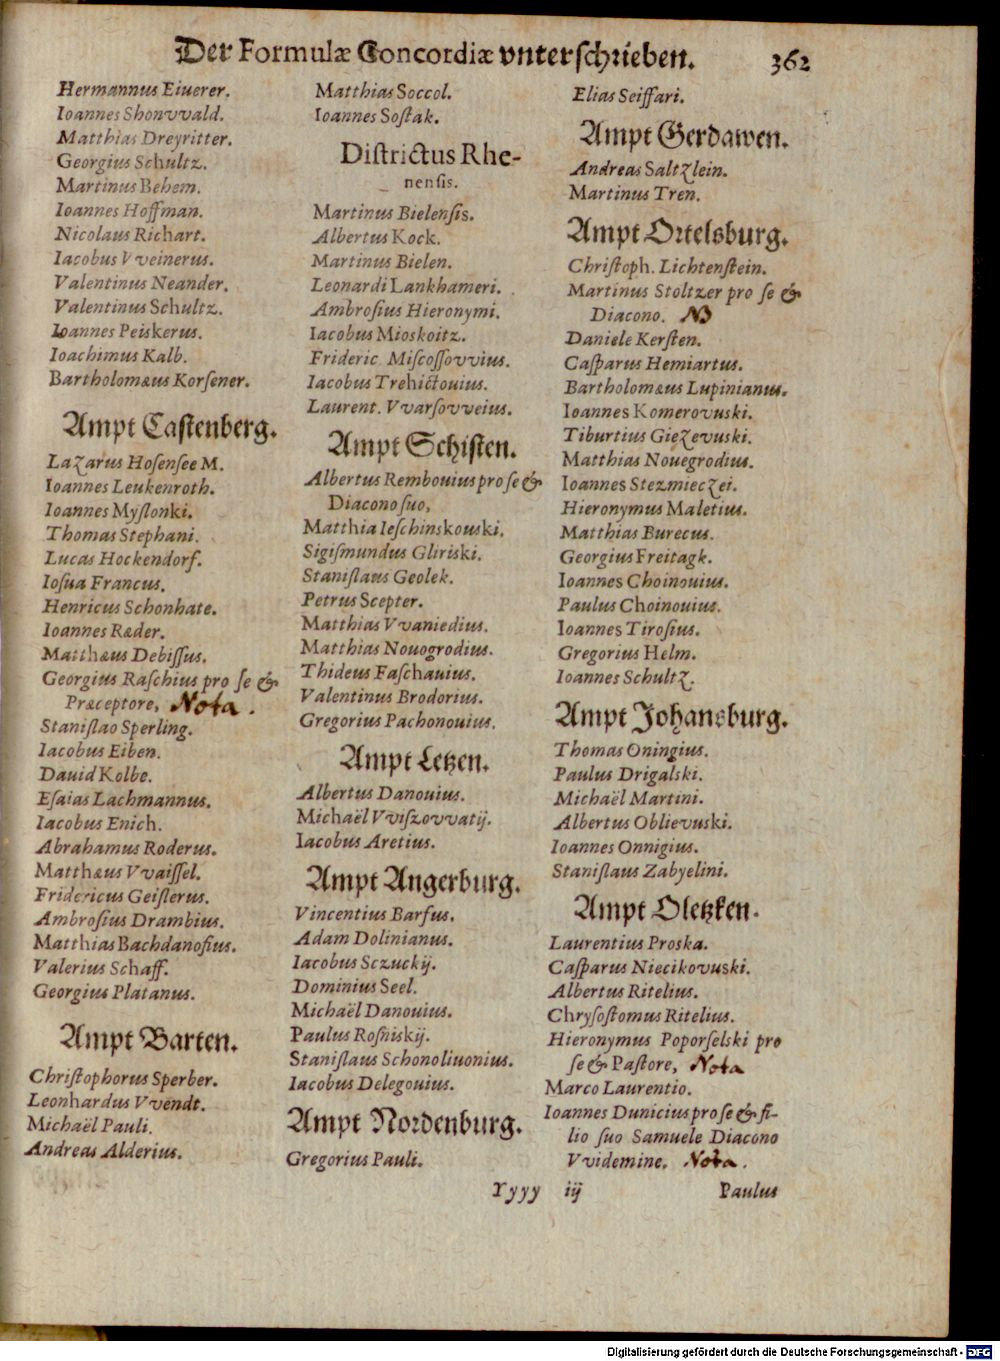 Der Formulæ Concordiæ vnterſchrieben. 362
Hermannus Eiuerer.
Ioannes Shonvvald.
Matthias Dreyritter.
Georgius Schultz.
Martinus Behem.
Ioannes Hoffman.
Nicolaus Richart.
Iacobus Vveinerus.
Valentinus Neander.
Valentinus Schultz.
Ioannes Peiskerus.
Ioachimus Kalb.
Bartholomæus Korſener.
Ampt Caſtenberg.
Lazarus Hoſenſee M.
Ioannes Leukenroth.
Ioannes Myſlonki.
Thomas Stephani.
Lucas Hockendorf.
Ioſua Francus.
Henricus Schonhate.
Ioannes Ræder.
Matthæus Debiſſus.
Georgius Raſchius pro ſe &
Præceptore, Nota.
Staniſlao Sperling.
Iacobus Eiben.
Dauid Kolbe.
Eſaias Lachmannus.
Iacobus Enich.
Abrahamus Roderus.
Matthæus Vvaiſſel.
Fridericus Geiſlerus.
Ambroſius Drambius.
Matthias Bachdanoſius.
Valerius Schaff.
Georgius Platanus.
Ampt Barten.
Chriſtophorus Sperber.
Leonhardus Vvendt.
Michaël Pauli.
Andreas Alderius.
Matthias Soccol.
Ioannes Soſtak.
Diſtrictus Rhe-
nenſis.
Martinus Bielenſis.
Albertus Kock.
Martinus Bielen.
Leonardi Lankhameri.
Ambroſius Hieronymi.
Iacobus Mioskoitz.
Frideric Miſcoſſovvius.
Iacobus Trehictouius.
Laurent. Vvarſovveius.
Ampt Schiſten.
Albertus Rembouius pro ſe &
Diacono ſuo,
Matthia Ieſchinskouski.
Sigiſmundus Gliriski.
Staniſlaus Geolek.
Petrus Scepter.
Matthias Vvaniedius.
Matthias Nouogrodius.
Thideus Faſchauius.
Valentinus Brodorius.
Gregorius Pachonouius.
Ampt Letzen.
Albertus Danouius.
Michaël Vviſzovvatij.
Iacobus Aretius.
Ampt Angerburg.
Vincentius Barfus.
Adam Dolinianus.
Iacobus Sczuckij.
Dominius Seel.
Michaël Danouius.
Paulus Roſniskij.
Staniſlaus Schonoliuonius.
Iacobus Delegouius.
Ampt Nordenburg.
Gregorius Pauli.
Elias Seiffari.
Ampt Gerdawen.
Andreas Saltzlein.
Martinus Tren.
Ampt Ortelsburg.
Chriſtoph. Lichtenſtein.
Martinus Stoltzer pro ſe &
Diacono. NB
Daniele Kerſten.
Caſparus Hemiartus.
Bartholomæus Lupinianus.
Ioannes Komerovuski.
Tiburtius Giezevuski.
Matthias Nouegrodius.
Ioannes Stezmieczei.
Hieronymus Maletius.
Matthias Burecus.
Georgius Freitagk.
Ioannes Choinouius.
Paulus Choinouius.
Ioannes Tiroſius.
Gregorius Helm.
Ioannes Schultz.
Ampt Johansburg.
Thomas Oningius.
Paulus Drigalski.
Michaël Martini.
Albertus Oblievuski.
Ioannes Onnigius.
Staniſlaus Zabyelini.
Ampt Oletzken.
Laurentius Proska.
Caſparus Niecikovuski.
Albertus Ritelius.
Chryſoſtomus Ritelius.
Hieronymus Poporſelski pro
ſe & Paſtore, Nota
Marco Laurentio.
Ioannes Dunicius pro ſe & fi-
lio ſuo Samuele Diacono
Vvidemine. Nota.
Yyyy iij Paulus
Digitalisierung gefördert durch die Deutsche Forschungsgemeinschaft - DFG